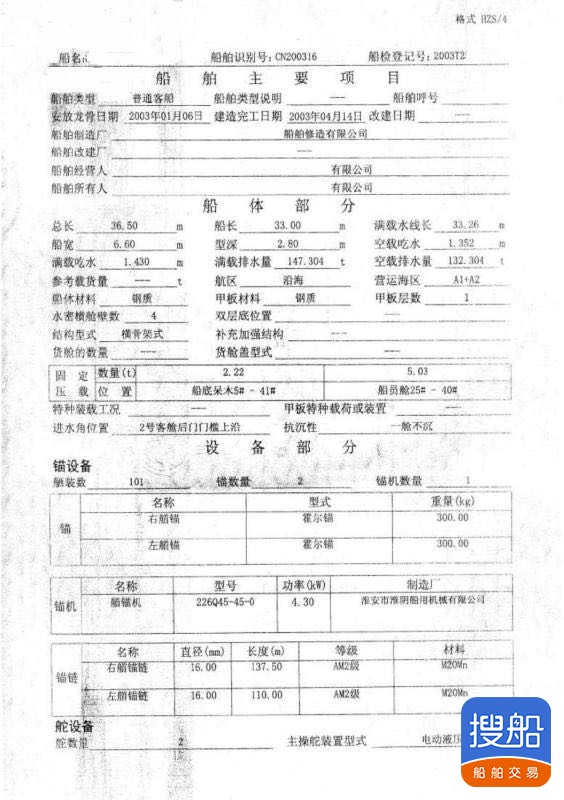 格式 HZS/4
船名 船舶识别号: CN200316 船检登记号: 2003T2
船 舶 主 要 项 目
船舶类型 普通客船 船舶类型说明 --- 船舶呼号
安放龙骨日期 2003年01月06日 建造完工日期 2003年04月14日 改建日期 ---
船舶制造厂 船舶修造有限公司
船舶改建厂 ---
船舶经营人 有限公司
船舶所有人 有限公司
船 体 部 分
总长 36.50 m 船长 33.00 m 满载水线长 33.26 m
船宽 6.60 m 型深 2.80 m 空载吃水 1.352 m
满载吃水 1.430 m 满载排水量 147.304 t 空载排水量 132.304 t
参考载货量 --- t 航区 沿海 营运海区 A1+A2
船体材料 钢质 甲板材料 钢质 甲板层数 1
水密横舱壁数 4 双层底位置 ---
结构型式 横骨架式 补充加强结构 ---
货舱的数量 --- 货舱盖型式 ---
固定 数量(t) 2.22 5.03
压载 位置 船底呆木5# - 41# 船员舱25# - 40#
特种装载工况 --- 甲板特种载荷或装置 ---
进水角位置 2号客舱后门门槛上沿 抗沉性 一舱不沉
设 备 部 分
锚设备
舾装数 101 锚数量 2 锚机数量 1
名称 型式 重量(kg)
锚 右艏锚 霍尔锚 300.00
左艏锚 霍尔锚 300.00
名称 型号 功率(kW) 制造厂
锚机 艏锚机 226Q45-45-0 4.30 淮安市淮阴船用机械有限公司
名称 直径(mm) 长度(m) 等级 材料
锚链 右艏锚链 16.00 137.50 AM2级 M20Mn
左艏锚链 16.00 110.00 AM2级 M20Mn
舵设备
舵数量 2 主操舵装置型式 电动液压
搜船
船舶交易